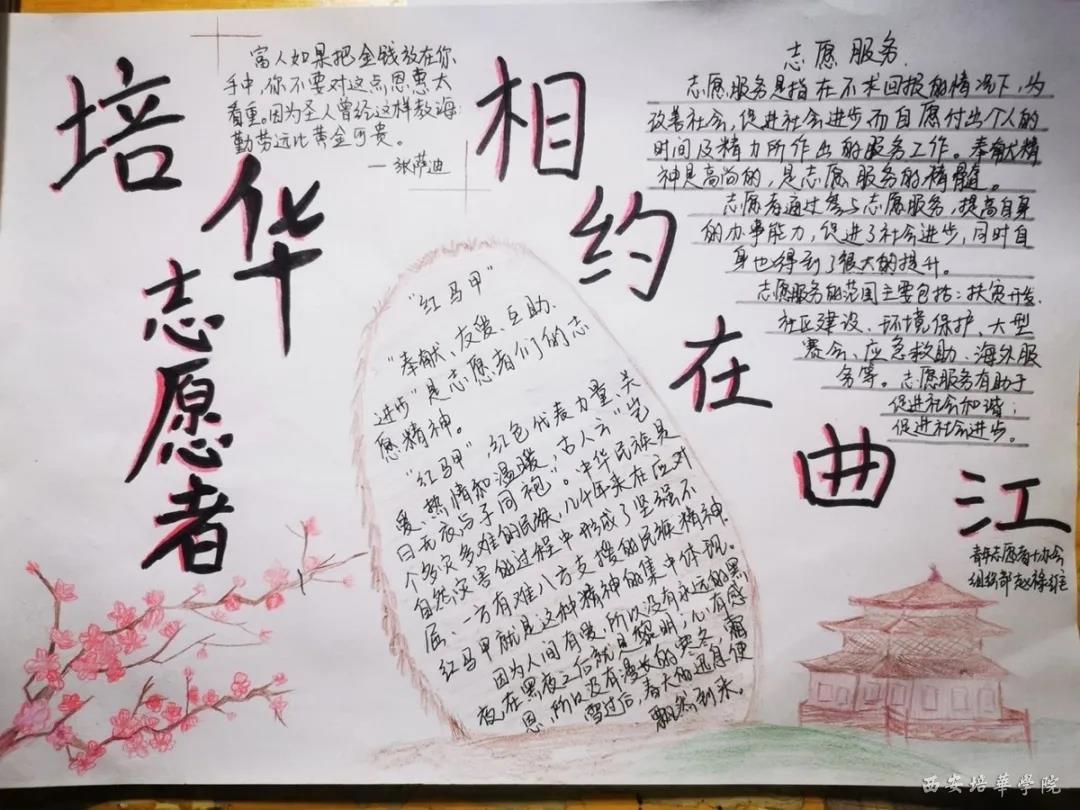 培华志愿者
相约在曲江
富人如果把金钱放在你
手中,你不要对这点恩惠太
看重。因为圣人曾经这样教诲:
勤劳远比黄金可贵。
—张萨迪
志愿服务
志愿服务是指在不求回报的情况下,为
改善社会,促进社会进步而自愿付出个人的
时间及精力所作出的服务工作。奉献精
神是高尚的,是志愿服务的精髓。
志愿者通过参与志愿服务,提高自身
的办事能力,促进了社会进步,同时自
身也得到了很大的提升。
志愿服务的范围主要包括:扶贫开发、
社区建设、环境保护、大型
赛会、应急救助、海外服
务等。志愿服务有助于
促进社会和谐;
促进社会进步。
“红马甲”
“奉献、友爱、互助、
进步”是志愿者们的志
愿精神。
“红马甲”,红色代表力量、关
爱、热情和温暖,古人云“岂
曰无衣,与子同袍”。中华民族是
个多灾多难的民族,几千年来在应对
自然灾害的过程中形成了坚强不
屈、一方有难八方支援的民族精神.
红马甲就是这种精神的集中体现。
因为人间有爱,所以没有永远的黑
夜,在黑夜之后就是黎明,心有感
恩,所以没有漫长的寒冬,霜
雪过后,春天的讯息便
飘然到来。
组织部
西安培華學院